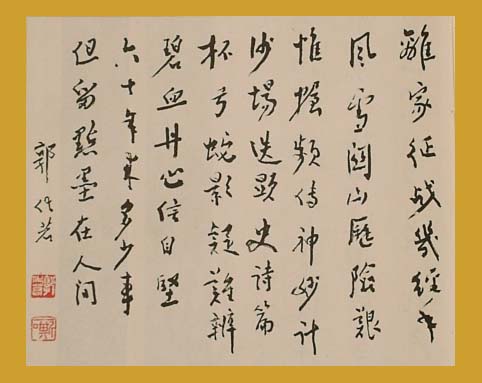 離家征战幾經年
風雪關山歷險艱
帷握频传神妙计
沙場迭顯史詩篇
杯弓蛇影疑難辨
碧血丹心信自堅
六十年来多少事
但留點墨在人间
郭